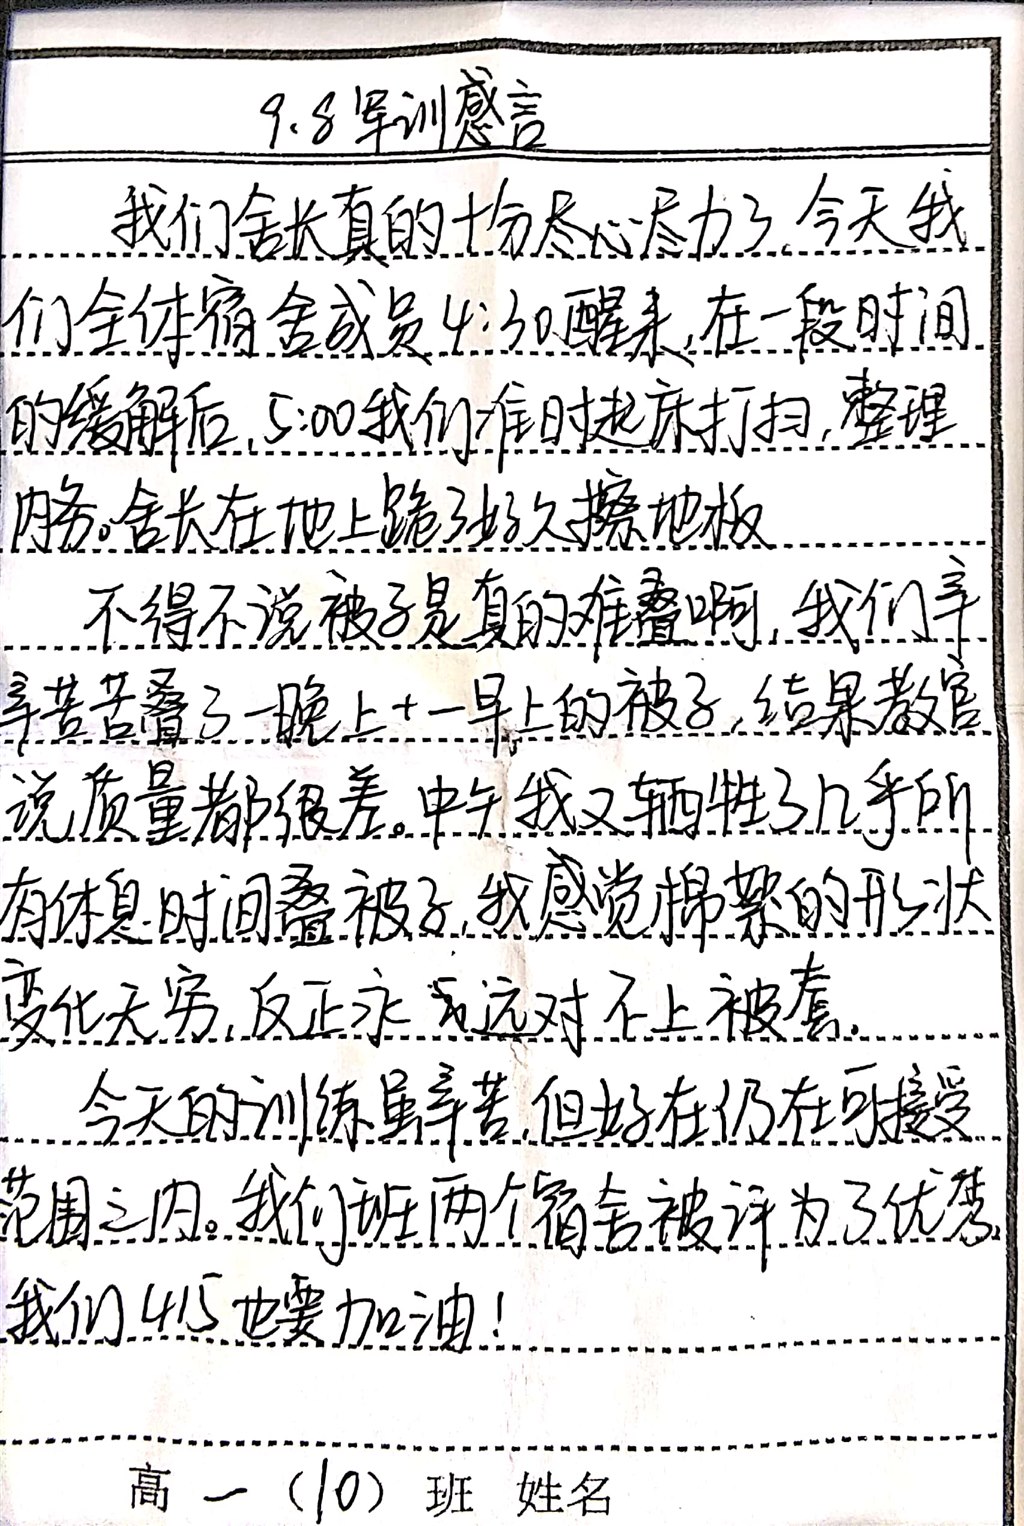 9.8军训感言
我们舍长真的十分尽心尽力了,今天我
们全体宿舍成员4:30醒来,在一段时间
的缓解后,5:00我们准时起床打扫,整理
内务。舍长在地上跪了好久擦地板
不得不说被子是真的难叠啊,我们辛
辛苦苦叠了一晚上+一早上的被子,结果教官
说质量都很差。中午我又牺牲了几乎所
有休息时间叠被子,我感觉棉絮的形状
变化无穷,反正永远对不上被套.
今天的训练虽辛苦,但好在仍在可接受
范围之内。我们班两个宿舍被评为了优秀,
我们415也要加油!
高一(10)班 姓名